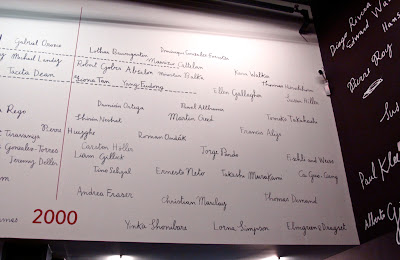 Gabriel Orozco Lothar Baumgarten Dominique Gonzalez-Foerster Diego Rivera
Michael Landy Maurizio Cattelan Edward
Robert Gober Absalon Miroslaw Balka Kara Walker
Tacita Dean Thomas Hirschhorn
Fiona Tan Yang Fudong Ellen Gallagher Pierre Roy
Damián Ortega Pawel Althamer
Paula Rego Shirin Neshat Martin Creed Tomoko Takahashi
Tiravanija Pierre Huyghe Roman Ondák Francis Alÿs
Gonzalez-Torres Carsten Höller Jorge Pardo Fischli and Weiss
Jeremy Deller Liam Gillick
Tino Sehgal Ernesto Neto Takashi Murakami Cai Guo-Qiang Paul Klee
Andrea Fraser Christian Marclay Thomas Demand
Alberto
2000 Yinka Shonibare Lorna Simpson Elmgreen & Dragset